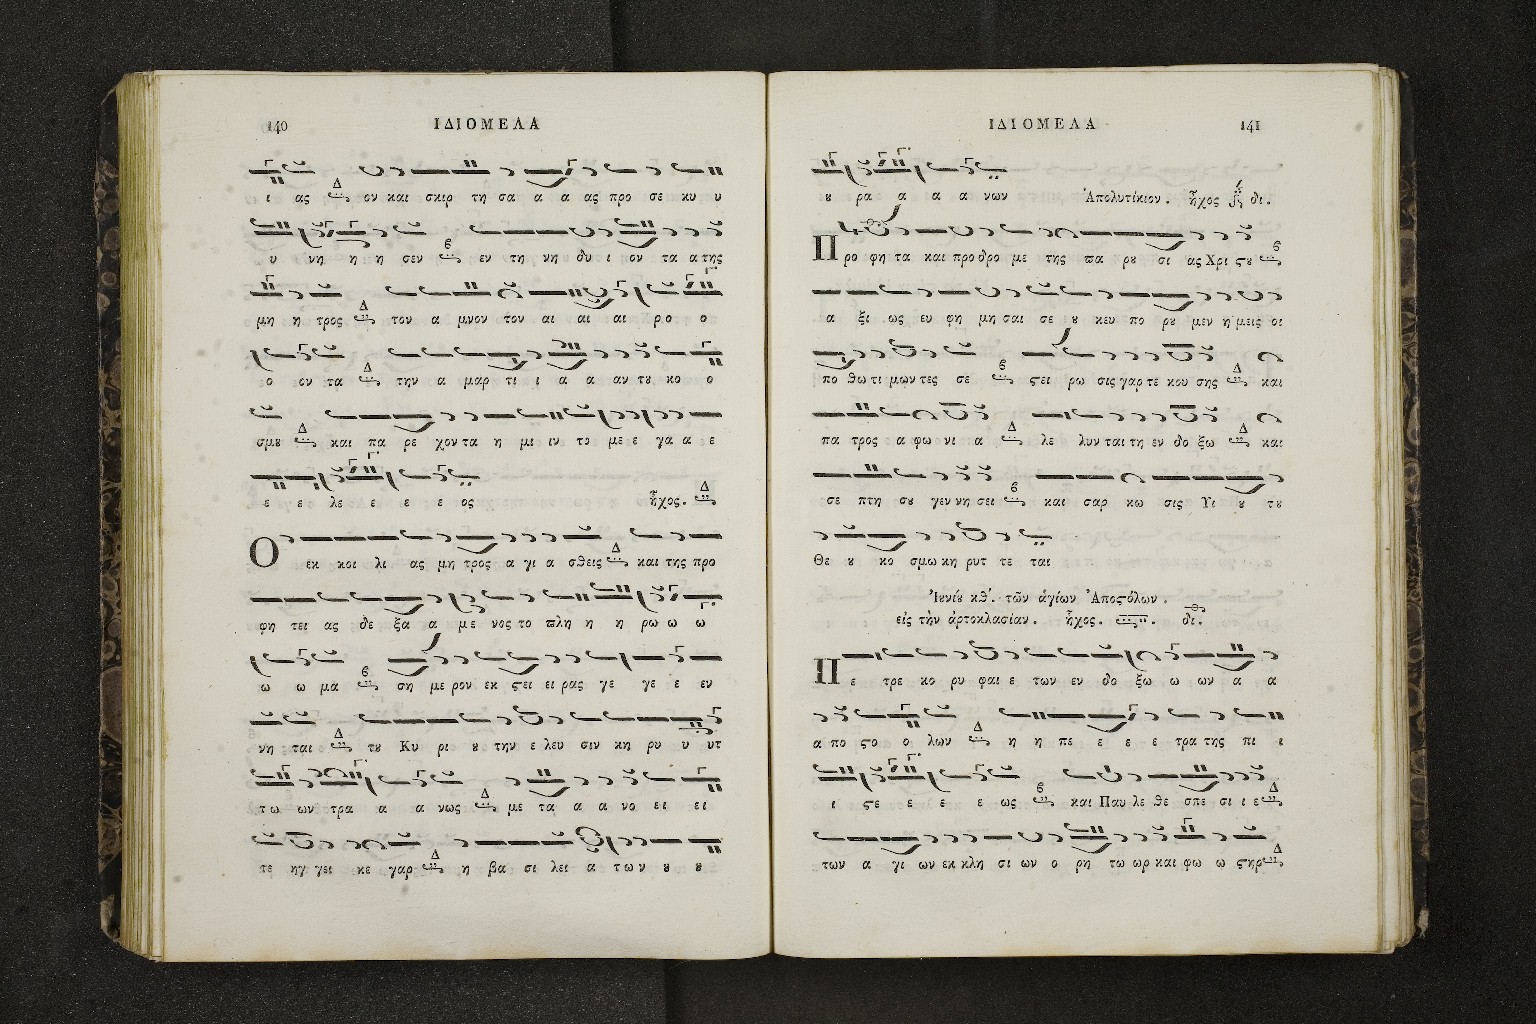 140 ΙΔΙΟΜΕΛΑ
ι ας ον και σκιρ τη σα α α ας προ σε κυ υ
υ νη η η σεν εν τη νη δυ ι ον τα α της
μη η τρος τον α μνον τον αι αι αι ρο ο
ο ον τα την α μαρ τι ι α α αν τȣ κο ο
σμȣ και πα ρε χον τα η μι ιν το με ε γα α ε
ε ε λε ε ε ε ος ἦχος.
Ο εκ κοι λι ας μη τρος α γι α σθεις και της προ
φη τει ας δε ξα α με νος το πλη η η ρω ω ω
ω ω μα ση με ρον εκ ϛει ει ρας γε γε ε εν
νη ται τȣ Κυ ρι ȣ την ε λευ σιν κη ρυ υ υτ
τω ων τρα α α νως με τα α α νο ει ει
τε ηγ γει κε γαρ η βα σι λει α των ȣ ȣ
ΙΔΙΟΜΕΛΑ 141
ȣ ρα α α α νων Ἀπολυτίκιον. ἦχος δι.
Προ φη τα και προ δρο με της πα ρȣ σι ας Χρι ϛȣ
α ξι ως ευ φη μη σαι σε ȣ κευ πο ρȣ μεν η μεις οι
πο θω τι μων τες σε ϛει ρω σις γαρ τε κου σης και
πα τρος α φω νι α λε λυν ται τη εν δο ξω και
σε πτη σȣ γεν νη σει και σαρ κω σις Υι ȣ τȣ
Θε ȣ κο σμω κη ρυτ τε ται
Ἰȣνίȣ κθ'. τῶν ἁγίων Ἀποϛόλων.
εἰς τὴν ἀρτοκλασίαν. ἦχος. δι.
Π ε τρε κο ρυ φαι ε των εν δο ξω ω ων α α
α πο ϛο ο λων η η πε ε ε ε τρα της πι ι
ι ϛε ε ε ε ως και Παυ λε θε σπε σι ι ε
των α γι ων εκ κλη σι ων ο ρη τω ωρ και φω ω ϛηρ